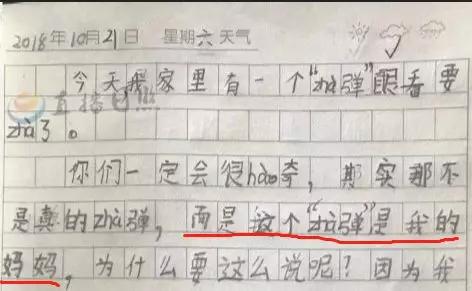 2018年10月21日 星期六 天气
今天我家里有一个“zhà弹”眼看要
直播日照
zhà了。
你们一定会很hào奇，期实那不
是真的zhà弹，而是这个“zhà弹”是我的
妈妈，为什么要这么说呢？因为我